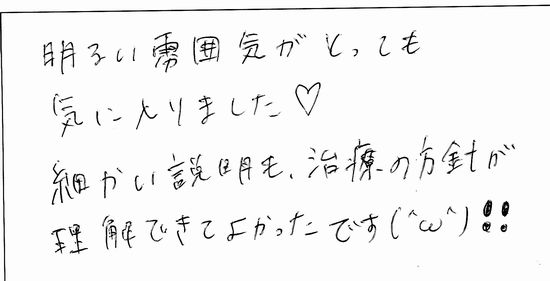 明るい雰囲気がとっても
気に入りました♡
細かい説明も、治療の方針が
理解できてよかったです(^ω^)!!